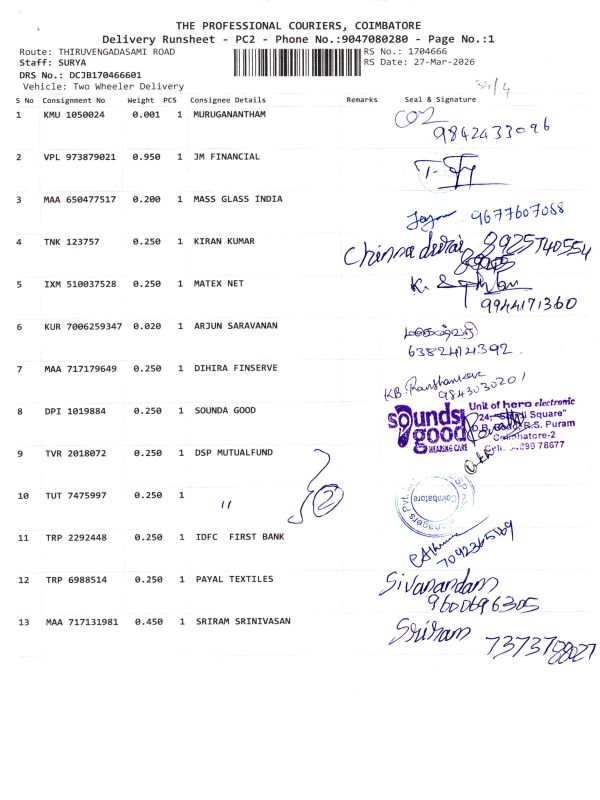 THE PROFESSIONAL COURIERS, COIMBATORE
Delivery Runsheet - PC2 - Phone No.:9047080280 - Page No.:1
Route: THIRUVENGADASAMI ROAD RS No.: 1704666
Staff: SURYA RS Date: 27-Mar-2026
DRS No.: DCJB170466601
Vehicle: Two Wheeler Delivery
S No Consignment No Weight PCS Consignee Details Remarks Seal & Signature
1 KMU 1050024 0.001 1 MURUGANANTHAM
9842433096
2 VPL 973879021 0.950 1 JM FINANCIAL
3 MAA 650477517 0.200 1 MASS GLASS INDIA
9677607088
4 TNK 123757 0.250 1 KIRAN KUMAR Chinnadurai 8925740554
5 IXM 510037528 0.250 1 MATEX NET K.
9944171360
6 KUR 7006259347 0.020 1 ARJUN SARAVANAN
6382414392
7 MAA 717179649 0.250 1 DIHIRA FINSERVE
KB.
9843030201
8 DPI 1019884 0.250 1 SOUNDA GOOD
sounds good HEARING CARE
Unit of hero electronic
Square"
R.S. Puram
Coimbatore-2
78677
9 TVR 2018072 0.250 1 DSP MUTUALFUND
10 TUT 7475997 0.250 1 " 2
Coimbatore
11 TRP 2292448 0.250 1 IDFC FIRST BANK
12 TRP 6988514 0.250 1 PAYAL TEXTILES Sivanandam
9600696305
13 MAA 717131981 0.450 1 SRIRAM SRINIVASAN Sriram